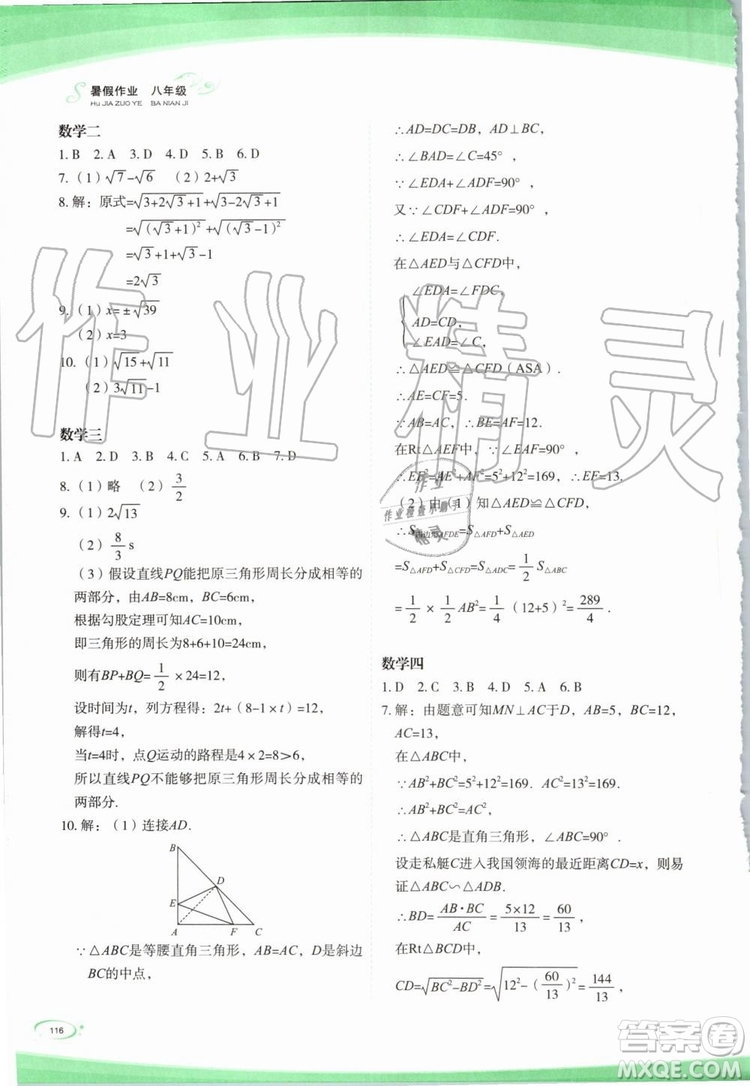 暑假作业 八年级
HU JIA ZUO YE BA NIAN JI
数学二
1. B 2. A 3. D 4. D 5. B 6. D
7.（1）√7-√6 （2）2+√3
8. 解：原式=√(3+2√3+1)+√(3-2√3+1)
=√((√3+1)²)+√((√3-1)²)
=√3+1+√3-1
=2√3
9.（1）x=±√39
（2）x=3
10.（1）√15+√11
（2）3√11-1
数学三
1. A 2. D 3. C 4. C 5. A 6. B 7. D
8.（1）略 （2）3/2
9.（1）2√13
（2）8/3 s
（3）假设直线PQ能把原三角形周长分成相等的
两部分，由AB=8cm，BC=6cm，
根据勾股定理可知AC=10cm，
即三角形的周长为8+6+10=24cm，
则有BP+BQ=1/2×24=12，
设时间为t，列方程：2t+（8-1×t）=12，
解得t=4，
当t=4时，点Q运动的路程是4×2=8>6，
所以直线PQ不能够把原三角形周长分成相等的
两部分.
10. 解：（1）连接AD.
B
D
E
A F C
∵△ABC是等腰直角三角形，AB=AC，D是斜边
BC的中点，
∴AD=DC=DB，AD⊥BC，
∴∠BAD=∠C=45°，
∵∠EDA+∠ADF=90°，
又∵∠CDF+∠ADF=90°，
∴∠EDA=∠CDF.
在△AED与△CFD中，
∠EDA=∠FDC，
AD=CD，
∠EAD=∠C，
∴△AED≌△CFD（ASA）.
∴AE=CF=5.
∵AB=AC，∴BE=AF=12.
在Rt△AEF中，∠EAF=90°，
∴EF²=AE²+AF²=5²+12²=169，∴EF=13.
（2）由（1）知△AED≌△CFD，
∴S四边形AFDE=S△AFD+S△AED
=S△AFD+S△CFD=1/2 S△ABC
=1/2×1/2 AB²=1/4（12+5）²=289/4
数学四
1. D 2. C 3. B 4. D 5. A 6. B
7. 解：由题意可知MN⊥AC于D，AB=5，BC=12，
AC=13，
在△ABC中，
∵AB²+BC²=5²+12²=169，
∴AB²+BC²=AC²，
∴△ABC是直角三角形，∠ABC=90°.
设走私艇C进入我国领海的最近距离CD=x，则易
证△ABC∽△ADB.
∴BD=AB·BC/AC=5×12/13=60/13
在Rt△BCD中，
CD=√(BC²-BD²)=√(12²-(60/13)²)=144/13
116
作业精灵
作业
作业检查小助手
精灵
答案圈
MXQE.COM